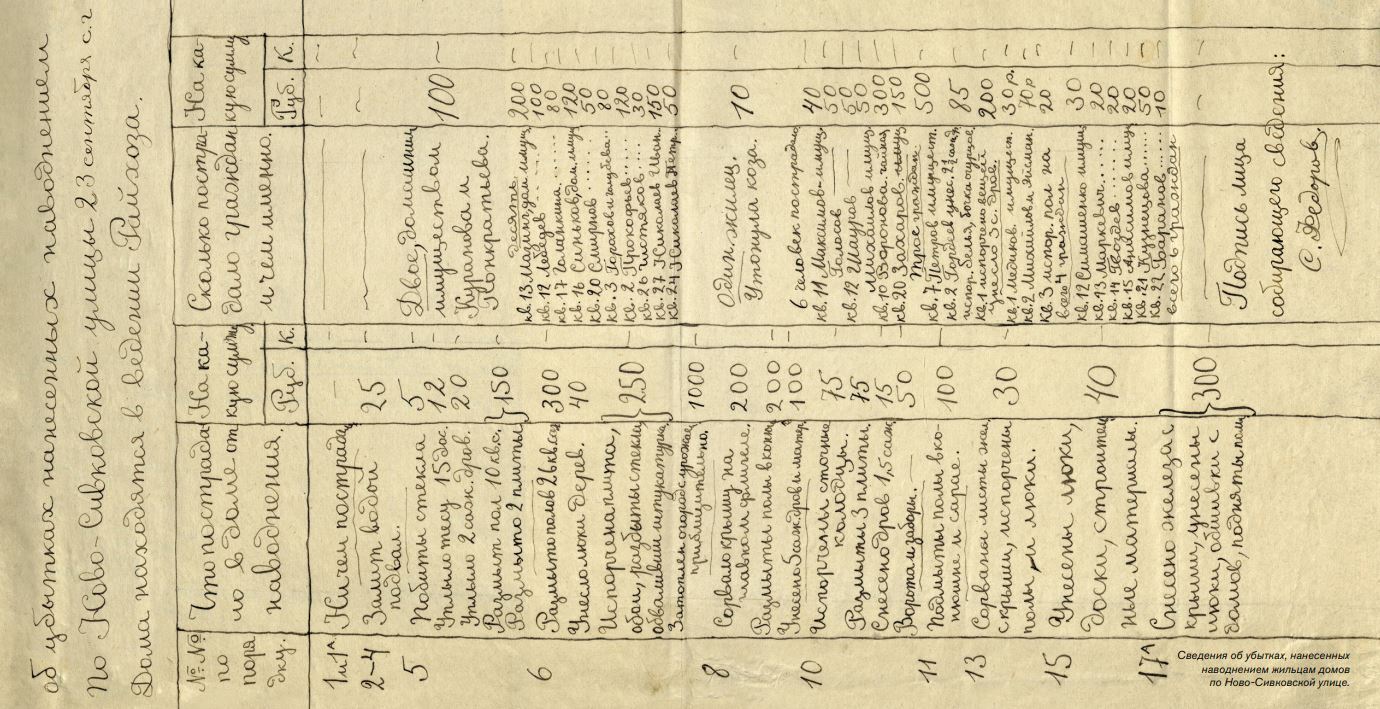 об убытках нанесенных наводнением
по Ново-Сивковской улицы 23 сентября с.г
Дома находятся в ведении Райхоза.
№ №
по
поря
дку.
Что пострада-
ло в доме от
наводнения.
На ка-
кую сумму
Руб. К.
Сколько постра-
дало граждан
и чем именно.
На ка-
кую сумму
Руб. К.
1 и 1А Ничем пострада — — — —
2-4 Залит водой 25 — — —
подвал.
5 Побиты стекла 5 —
Уплыло тесу 15 дос. 12 —
Уплыло 2 саж. дров. 20 —
Двое, домашни
имуществом
Куранова и
Понкратьева.
100 —
Размыт пол 10 кв.с.
Размыто 2 плиты
150 —
6 Размыто полов 26 кв.саж 300 —
Унесло люки дерев. 40 —
Испорчена плита,
обои, разбиты стекла
обвалившаяся штукатурка
250 —
Затоплен огород с урожае
приблизительно.
1000 —
десять
кв. 13 Мазин дом. имущ 200 —
кв. 12 Лебедев 100 —
кв. 17 Голанкина ...... 80 —
кв. 16 Синьков, дом. имущ 120 —
кв. 20 Смирнов ...... 50 —
кв. 3 Горохов и 80 —
кв. 2 Прокофьев ...... 120 —
кв. 26 Чистяков ..... 30 —
кв. 27 Николаев Иван. 150 —
кв. 24 Николаев Петр. 50 —
8 Сорвало крышу на
главном флигеле.
200 —
Один. жилец.
Утонула коза.
10 —
Размыты полы в комн 200 —
Унесено 5 саж дров и матер 100 —
10 Испорчены сточные
колодцы.
75 —
Размыты 3 плиты. 75 —
Снесено дров 1,5 саж 15 —
Ворота и заборы. 50 —
6 человек пострадало
кв. 11 Максимов - имущ 40 —
Голосов 50 —
кв. 12 Шауров 50 —
Михайлов имущ 50 —
кв. 10 Воронова 300 —
кв. 20 Захаров. имущ 150 —
11 Подмыты полы в ко-
нюшне и сарае.
100 —
Трое граждан
кв. 7 Петров имуществ. 500 —
кв. 2 Гордеев унес. 85 —
испор. белья, бочка огурцов
13 Сорваны листы жел
с крыши, испорчены
полы и люки.
30 —
кв. 1 испорчено вещей 200 —
унесло 3 с. дров.
кв. 1 Медиков. имущест. 30 р. —
кв. 2 Михайлов и 70 р —
кв. 3 испор. пол на 20 —
всего 4 граждан
15 Унесены люки,
доски, строитель
ные материалы.
40 —
кв. 12 Симашенко имущ 30 —
кв. 13 Маркевич ..... 20 —
кв. 14 Гвоздев ..... 20 —
кв. 15 Анисимов имущ 20 —
кв. 21 Кузнецова ..... 50 —
кв. 22 Баранов ..... 10 —
всего 6 граждан
17А Снесено железа с
крыши, унесены
люки, обшивки с
домов, подняты полы
300 —
Подпись лица
собирающего сведения:
С. Федоров,
Сведения об убытках, нанесенных
наводнением жильцам домов
по Ново-Сивковской улице.